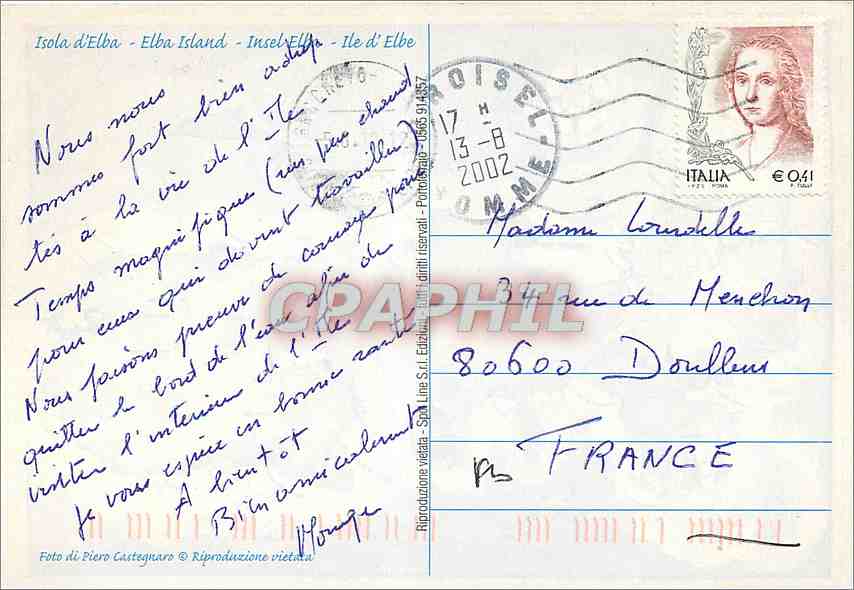 Isola d'Elba - Elba Island - Insel Elba - Ile d'Elbe
Nous nous
sommes fort bien adap
tés à la vie de l'Ile
Temps magnifique (un peu chaud
pour ceux qui doivent travailler)
Nous faisons preuve de courage pour
quitter le bord de l'eau afin de
visiter l'intérieur de l'Ile
Je vous espère en bonne santé
A bientôt
Bien amicalement
Foto di Piero Castegnaro © Riproduzione vietata
Riproduzione vietata - Spot Line S.r.l. Edizioni - tutti i diritti riservati - Portoferraio - 0565 914357
ROISEL
17 H
13-8
2002
SOMME
ITALIA
€ 0,41
I.P.Z.S. ROMA
P. TULLI
Madame Lourdelle
34 rue de Menchon
80600 Doullens
FRANCE
CPAPHIL